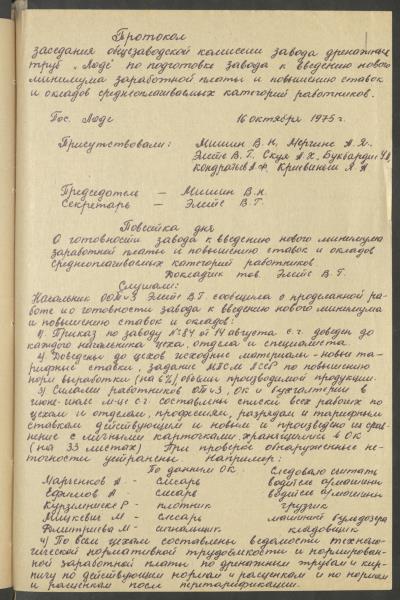 Протокол
заседания общезаводской комиссии завода дренажных
труб „Лоде" по подготовке завода к введению нового
минимума заработной платы и повышению ставок
и окладов среднеоплачиваемых категорий работников.
Пос. Лоде 16 октября 1975 г.
Присутствовали: Мишин В.Н,
Элейс В.Г. Скуя А.Х.
Кондратьев А.Ф.
Председатель — Мишин В.Н.
Секретарь — Элейс В.Г.
Повестка дня
О готовности завода к введению нового минимума
заработной платы и повышению ставок и окладов
среднеоплачиваемых категорий работников.
Докладчик тов. Элейс В.Г.
Слушали:
Начальник ООТиЗ Элейс В.Г. сообщила о проделанной ра-
боте и о готовности завода к введению нового минимума
и повышению ставок и окладов:
1) Приказ по заводу № 84 от 14 августа с.г. доведен до
каждого начальника цеха, отдела и специалиста
2) Доведены до цехов исходные материалы - новые та-
рифные ставки, задание МПСМ ЛССР по повышению
норм выработки (на 6%) объемы производимой продукции.
3) Силами работников ОТиЗ, ОК и бухгалтерии в
июне-июле м-це с.г. составлены списки всех рабочих по
цехам и отделам, профессиям, разрядам и тарифным
ставкам действующим и новым и произведено их срав-
нение с личными карточками, хранящимися в ОК
(на 33 листах) При проверке обнаруженные не-
точности устранены. Например:
По данным ОК: Следовало считать
Марченков А - слесарь водитель автомашины
Ефимов А - слесарь водитель автомашины
- плотник грузчик
Мицкевич М - слесарь машинист бульдозера
Дмитриева М - сигнальщик кладовщик
4) По всем цехам составлены ведомости техноло-
гической нормативной трудоемкости и нормирован-
ной заработной платы по дренажным трубам и кир-
пичу по действующим нормам и расценкам и по нормам
и расценкам после перетарификации.